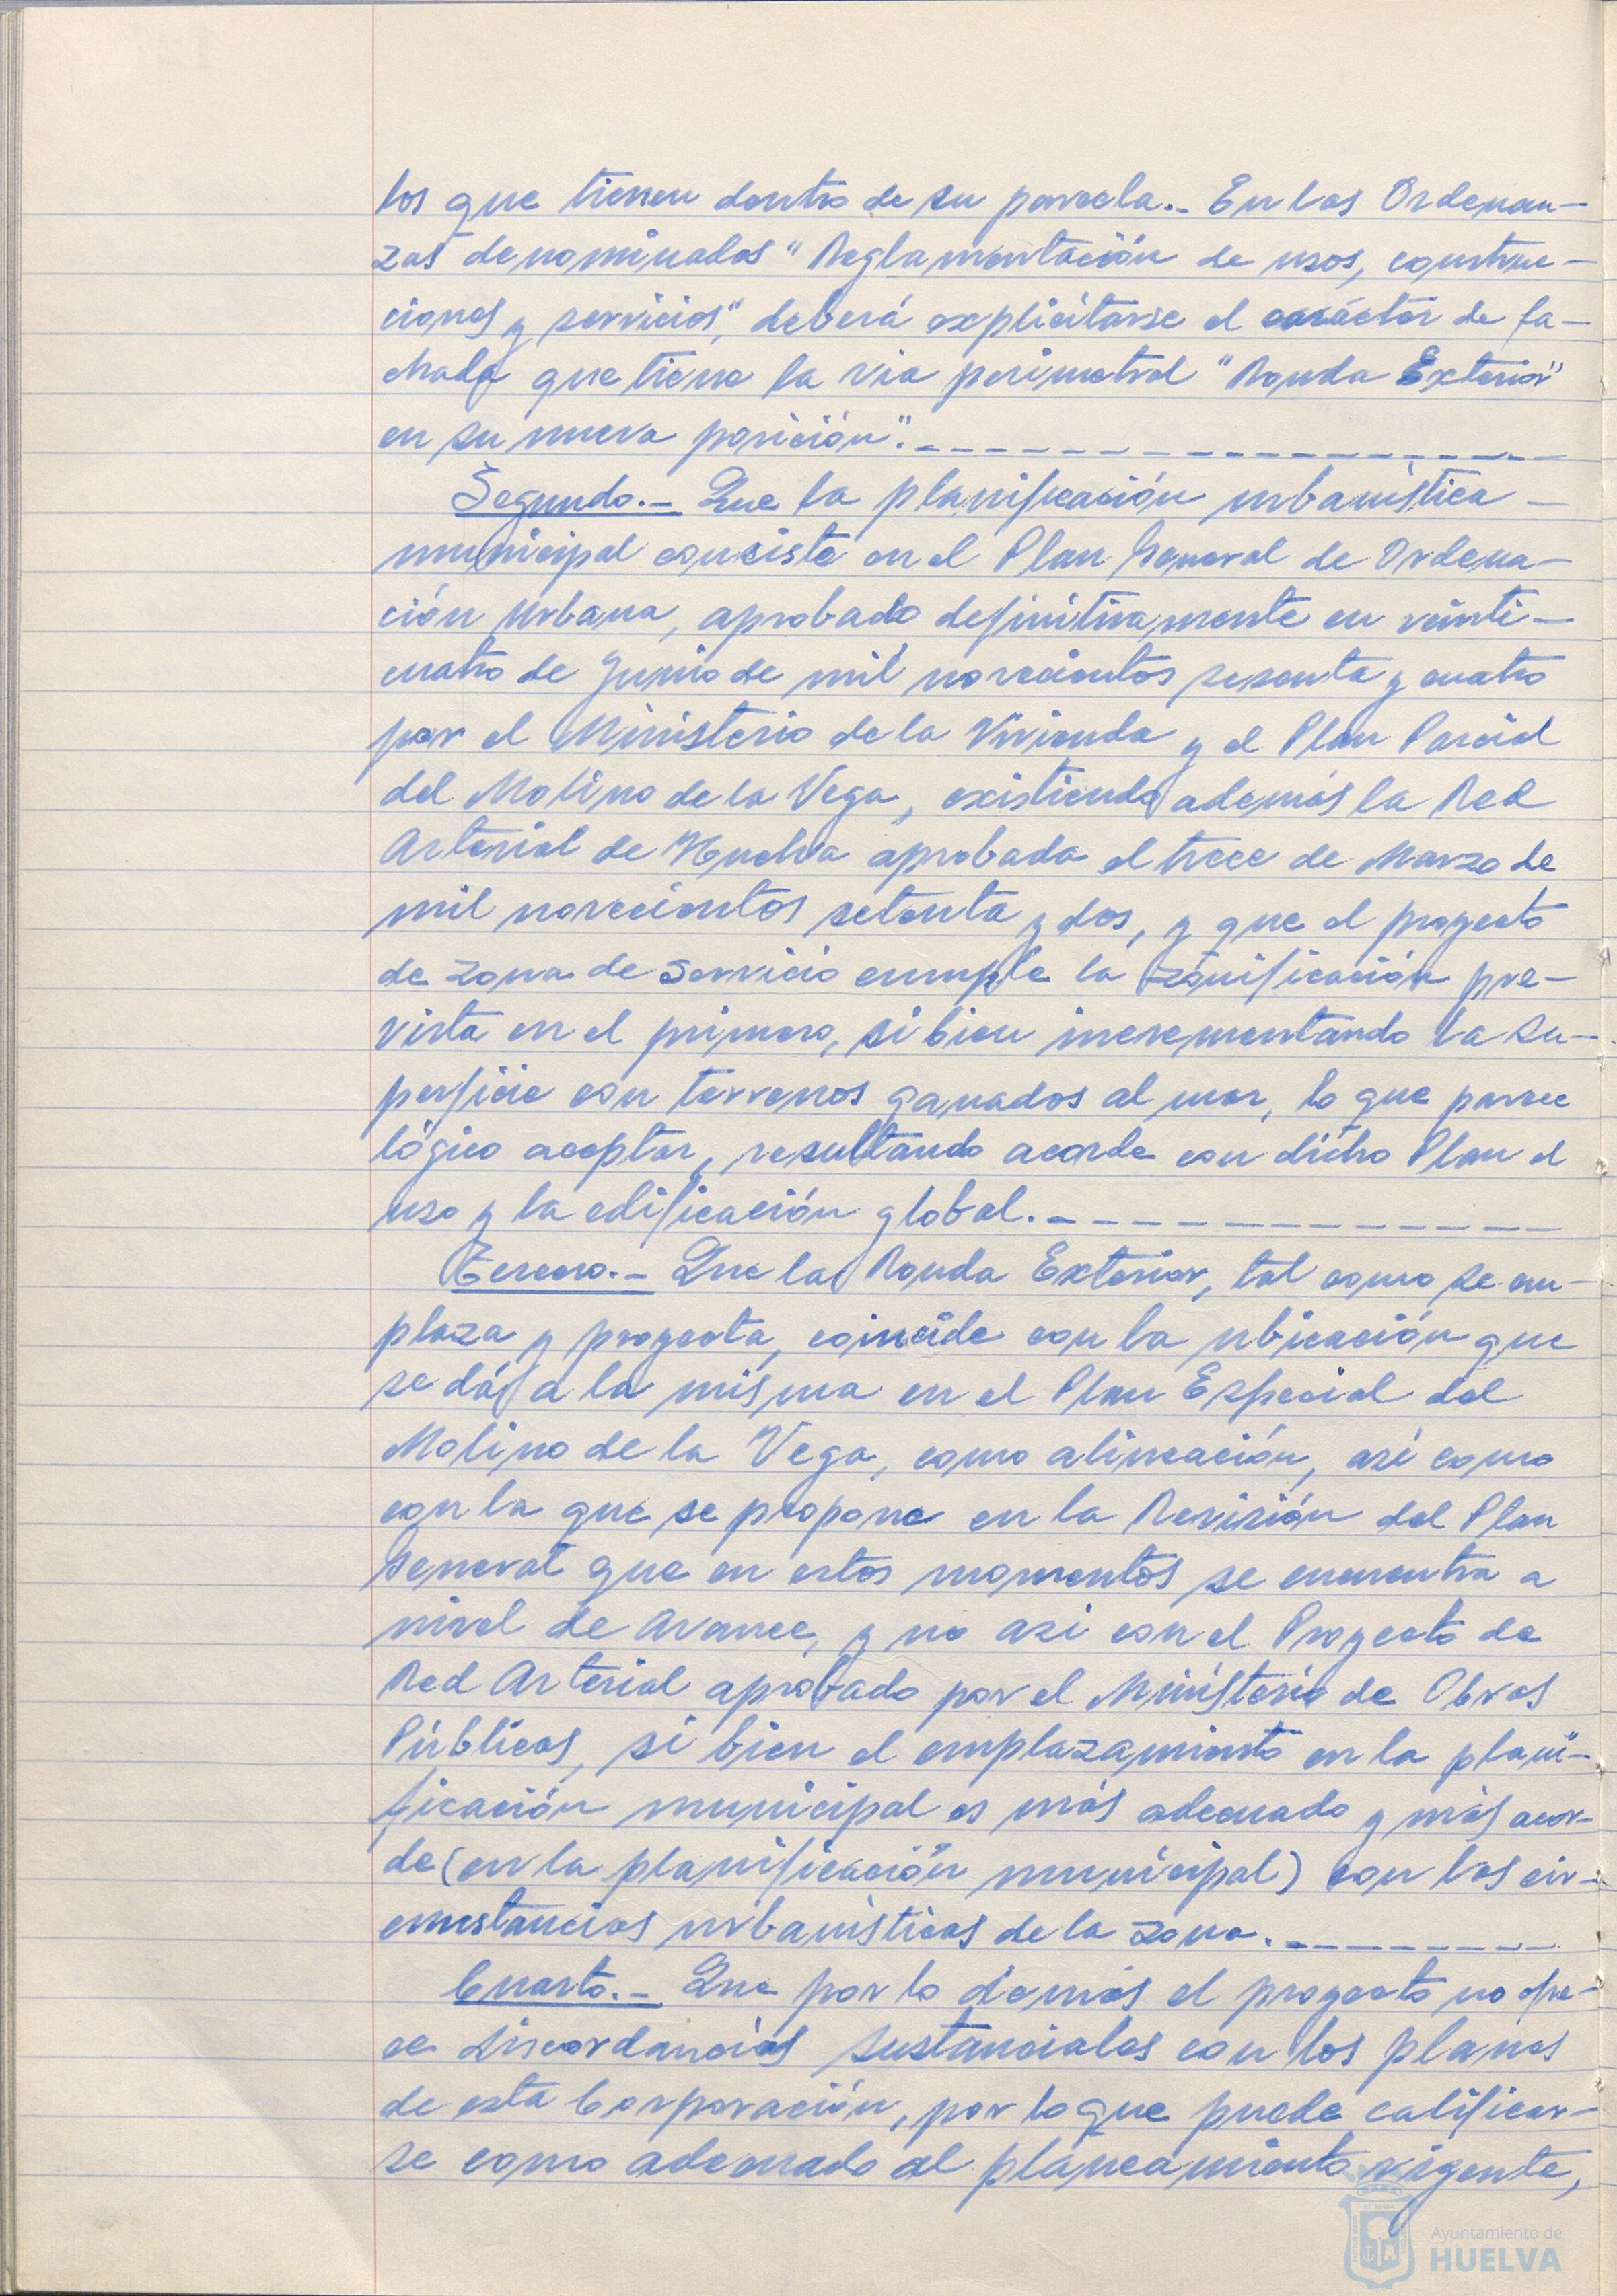 tos que tienen dentro de su parcela.- En las Ordenan-
zas denominadas "Reglamentación de usos, construc-
ciones y servicios", deberá explicitarse el carácter de fa-
chada que tiene la via perimetral "Ronda Exterior"
en su nueva posición".- - - - - - - - - - - - - - - - - -
Segundo.- Que la planificación urbanística -
municipal consiste en el Plan General de Ordena-
ción Urbana, aprobado definitivamente en veinti-
cuatro de Junio de mil novecientos sesenta y cuatro
por el Ministerio de la Vivienda y el Plan Parcial
del Molino de la Vega, existiendo además la Red
Arterial de Huelva aprobada el trece de Marzo de
mil novecientos setenta y dos, y que el proyecto
de zona de servicio cumple la zonificación pre-
vista en el primero, si bien incrementando la su-
perficie con terrenos ganados al mar, lo que parece
lógico aceptar, resultando acorde con dicho Plan el
uso y la edificación global.- - - - - - - - - - - - - -
Tercero.- Que la Ronda Exterior, tal como se em-
plaza y proyecta, coincide con la ubicación que
se dá a la misma en el Plan Especial del
Molino de la Vega, como alineación, así como
con la que se propone en la Revisión del Plan
General que en estos momentos se encuentra a
nivel de Avance, y no asi con el Proyecto de
Red Arterial aprobado por el Ministerio de Obras
Públicas, si bien el emplazamiento en la plani-
ficación municipal es más adecuado y más acor-
de (en la planificación municipal) con las cir-
cunstancias urbanísticas de la zona.- - - - - - - -
Cuarto.- Que por lo demás el proyecto no ofre-
ce discordancias sustanciales con los planes
de esta Corporación, por lo que puede calificar-
se como adecuado al planeamiento vigente,
Ayuntamiento de
HUELVA